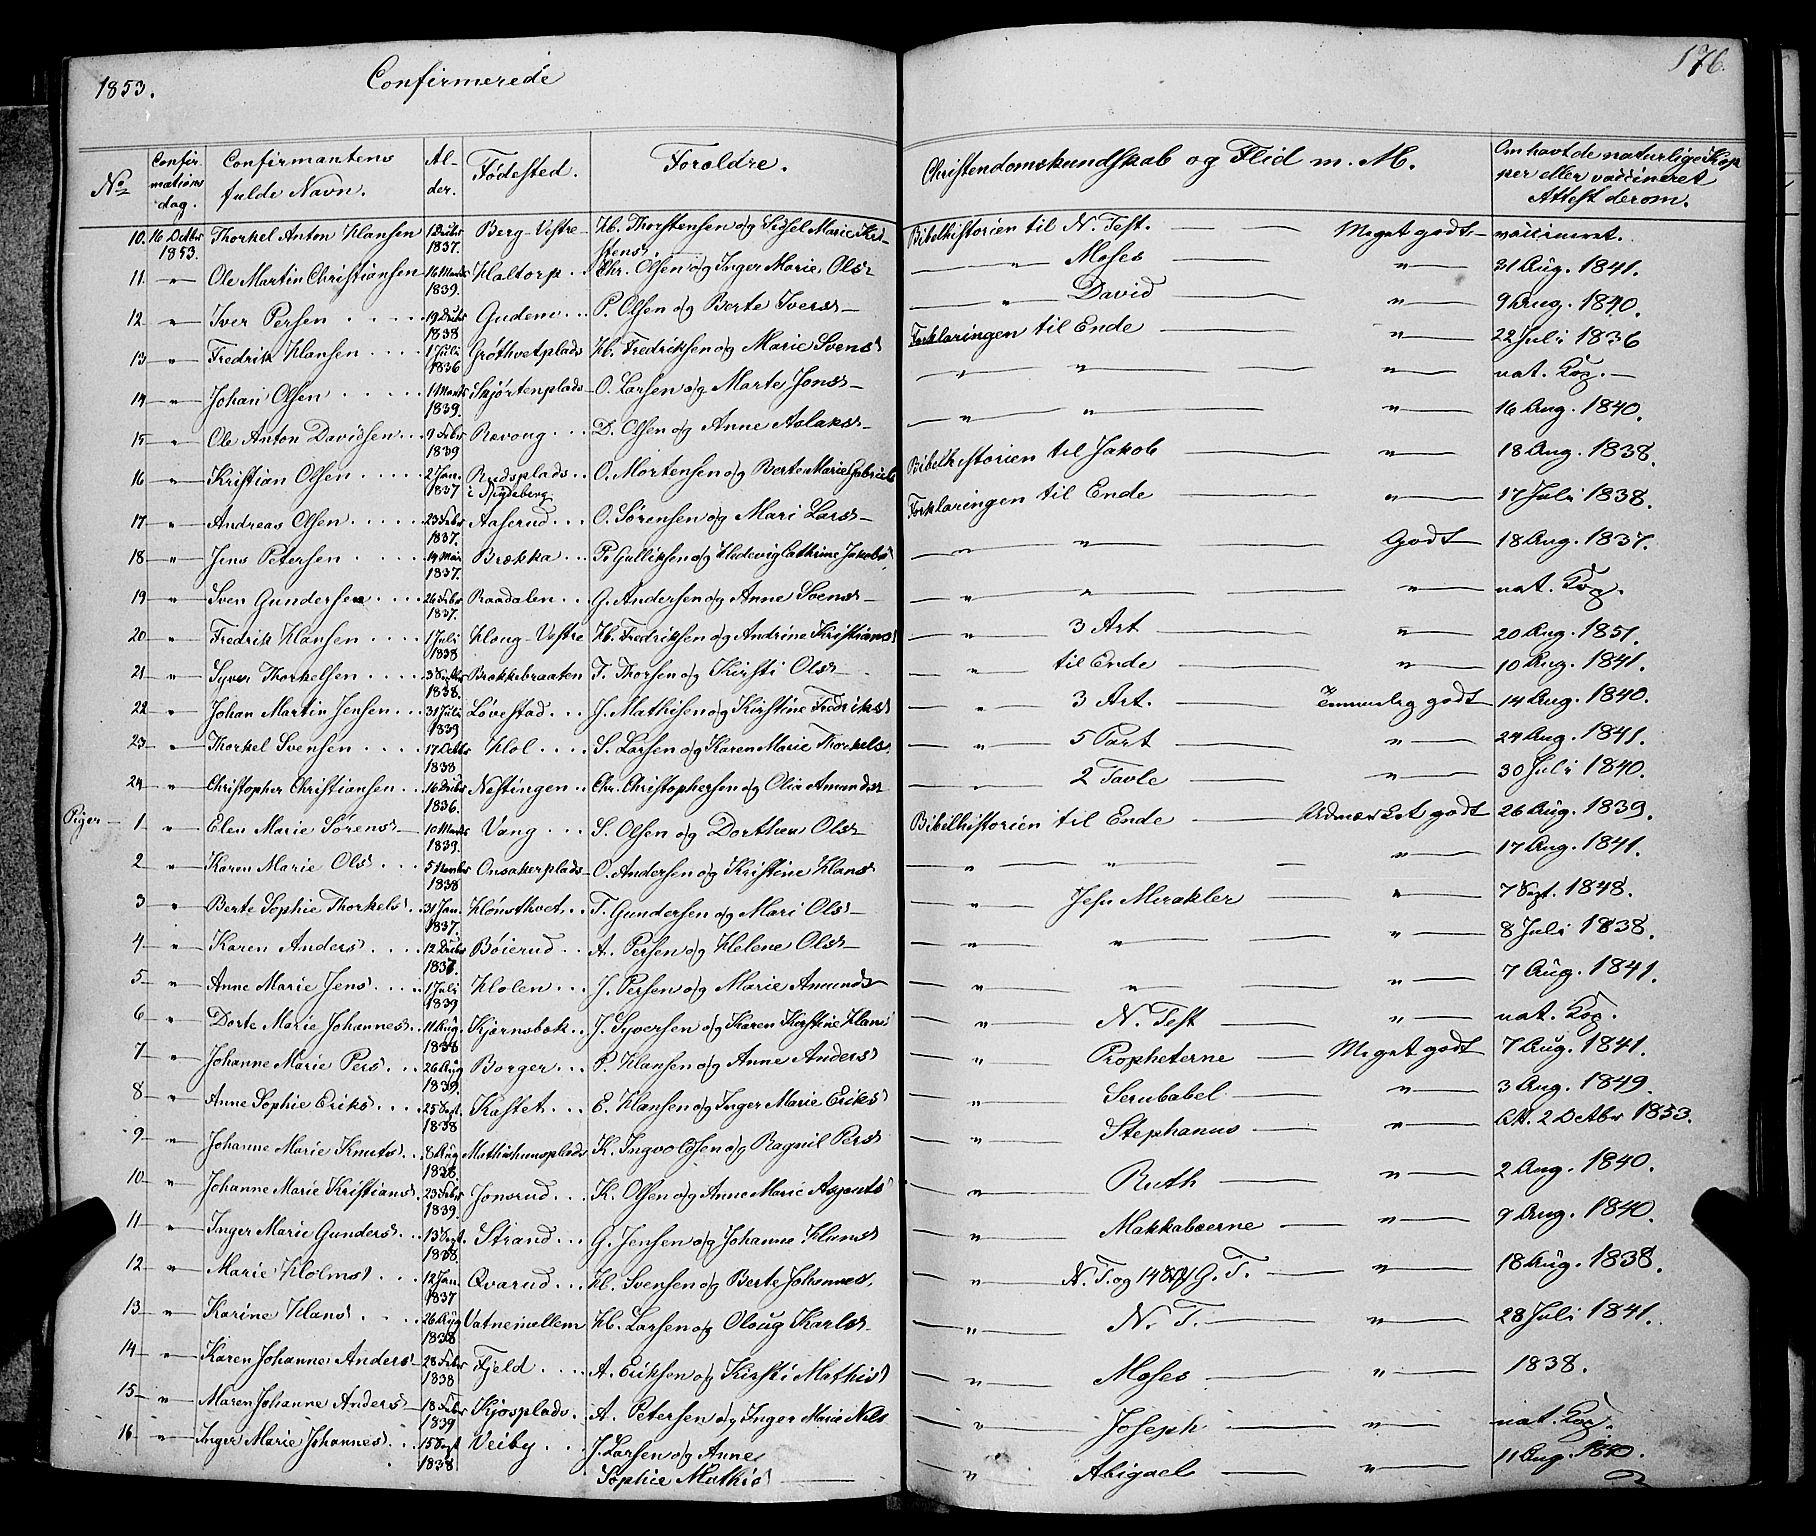 1853. Confirmerede 176.
No Confirmations dag. Confirmantens fulde Navn. Alder. Fødested. Foreldre. Christendomskundskab og Flid m. M. Om havt de naturlige Kopper eller vaccineret Attest derom.
10. 16 Octbr 1853. Thorkel Anton Hansen 1837. Berg-Vestre H. Thorstensen og Sidsel Marie Kristens Bibelhistorien til N. Test. Meget godt vaccineret.
11. " Ole Martin Christiansen 16 Marts 1839. Haltorp Chr. Olsen og Inger Marie Ols " Moses " 31 Aug. 1841.
12 " Iver Persen 19 1838 Gudem P. Olsen og Berte Ivers " David " 9 Aug. 1840.
13 " Fredrik Hansen 1 Juli 1836 Grøthvetplads H. Fredriksen og Marie Svens Forklaringen til Ende " 22 Juli 1836
14 " Johan Olsen 1 Marts 1839. Skjørtenplads O. Larsen og Marte Jons " " " nat. Kop.
15 " Ole Anton Davidsen 9 Febr 1839 Revoug D. Olsen og Anne Aslaks " " " 16 Aug. 1840.
16 " Kristian Olsen 2 Jan. 1837 Rudsplads i O. Mortensen og Berte Marie Gabriels Bibelhistorien til Jakob " 18 Aug. 1838.
17 " Andreas Olsen 23 Febr 1837. Aaserud O. Sørensen og Mari Lars Forklaringen til Ende " 17 Juli 1838.
18 " Jens Petersen 14 Mai 1837. Brekka P. Gulliksen og Hedevig Cathrine Jakobs " " Godt 18 Aug. 1837.
19 " Sven Gundersen 26 Febr 1837. Raadalen G. Andersen og Anne Svens " " " nat. Kop.
20 " Fredrik Hansen 1 Juli 1838 Houg-Vestre H. Fredriksen og Andrine Kristians " 3 Art " 20 Aug. 1851.
21 " Syver Thorkelsen 3 1838. Brekkebraaten T. Thorsen og Kirsti Ols " til Ende " 10 Aug. 1841.
22 " Johan Martin Jensen 31 Juli 1839 Løvestad J. Mathisen og Kirstine Fredriks " 3 Art. Temmelig godt 14 Aug. 1840.
23 " Thorkel Svensen 17 Octbr 1838 Hol S. Larsen og Karen Marie Thorkels " 5 Part " 24 Aug. 1841.
24 " Christopher Christiansen 16 1836. Nestingen Chr. Christophersen og Olia Amunds " 2 Tavle " 30 Juli 1840.
Piger 1 " Elen Marie Sørens 10 Marts 1839. Vang S. Olsen og Dorthea Ols Bibelhistorien til Ende Udmærket godt 26 Aug. 1839.
2 " Karen Marie Ols 5 1838 Onsakerplads O. Andersen og Kristine Hans " " " 17 Aug. 1841.
3 " Berte Sophie Thorkels 31 Jan. 1837. Hønsthvet T. Gundersen og Mari Ols " Jesu Mirakler " 7 Sept. 1848.
4 " Karen Anders 12 1837. Bøierud A. Persen og Helene Ols " " " 8 Juli 1838.
5 " Anne Marie Jens 1 Juli 1839 Holen J. Persen og Marie Amunds " " " 7 Aug. 1841.
6 " Dorte Marie Johannes 11 Aug 1838 Kjørnsbek J. Syversen og Karen Kirstine Hans " N. Test " nat. Kop.
7 " Johanne Marie Pers 26 Aug 1839. Borger P. Hansen og Anne Anders " Propheterne Meget godt 7 Aug. 1841.
8 " Anne Sophie Eriks 25 Sept 1838 Kastet E. Hansen og Inger Marie Eriks " Serubabel " 3 Aug. 1849.
9 " Johanne Marie Knuts 8 Aug 1838. Mathishuusplads K. Ingvoldsen og Ragnil Pers " Stephanus " Att. 2 Octbr 1853.
10 " Johanne Marie Kristians 23 Febr 1839. Jonsrud K. Olsen og Anne Marie Asjents " Ruth " 2 Aug. 1840.
11 " Inger Marie Gunders 13 Sept. 1838. Strand G. Jensen og Johanne Hans " Makkabæerne " 9 Aug. 1840.
12 " Marie Holms 12 Jan. 1837 Qvarud H. Svensen og Berte Johannes " N. T. og 148 G. T. " 18 Aug. 1838.
13 " Karine Hans 26 Aug 1838 Vatnemellem H. Larsen og Oloug Karls " N. T. " 28 Juli 1841.
14 " Karen Johanne Anders 28 Febr 1838 Fjeld A. Eriksen og Kirsti Mathis " Moses " 1838.
15 " Maren Johanne Anders 18 Febr 1839 Kjosplads A. Petersen og Inger Marie Nils " Joseph " nat. Kop.
16 " Inger Marie Johannes 15 Sept 1838 Veiby J. Larsen og Anne Sophie Mathis " Abigael " 11 Aug. 1840.